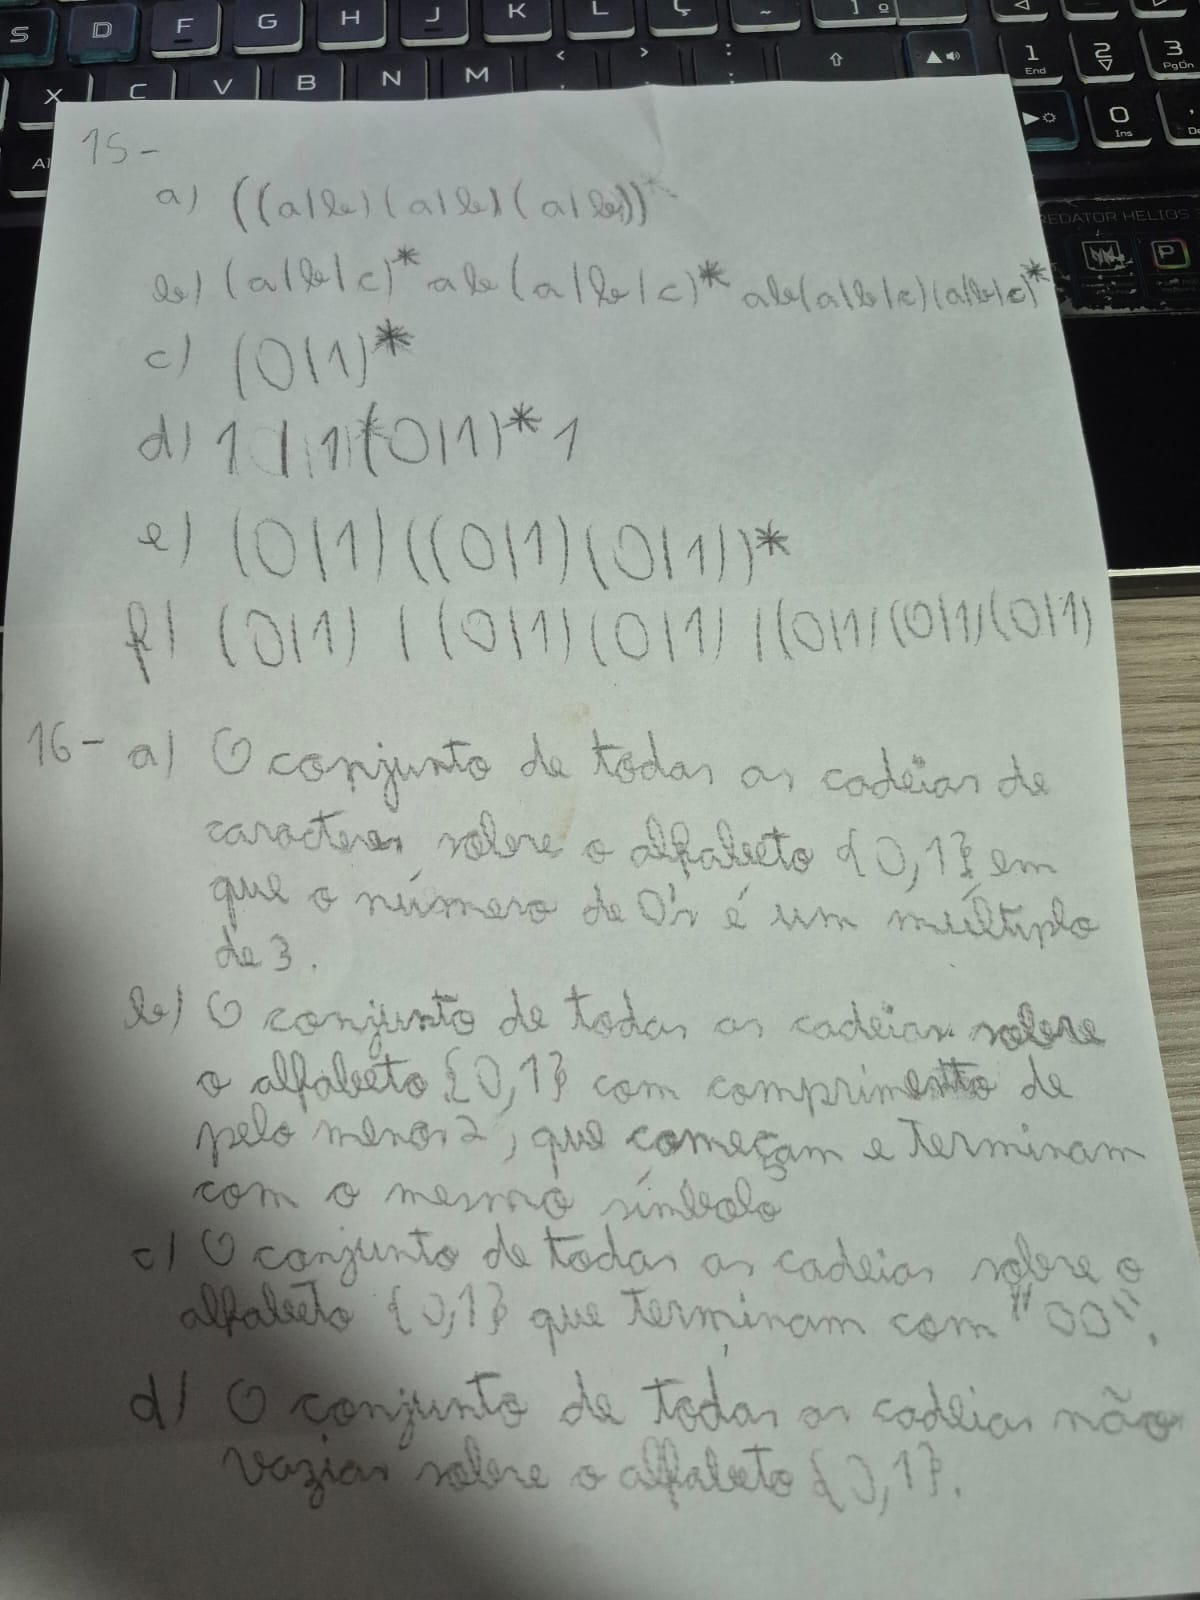 S D F G H J K L Ç ~ ] º
X C V B N M < , > . : ; ⇧ 1 End 2 3 PgDn
0 Ins
PREDATOR HELIOS
15-
a) ((a|b)(a|b)(a|b))*
b) (a|b|c)* ab(a|b|c)* ab(a|b|c)(a|b|c)*
c) (0|1)*
d) 1 | 1(0|1)* 1
e) (0|1)((0|1)(0|1))*
f) (0|1) | (0|1)(0|1) | (0|1)(0|1)(0|1)
16- a) O conjunto de todas as cadeias de
caracteres sobre o alfabeto {0,1} em
que o número de 0's é um múltiplo
de 3.
b) O conjunto de todas as cadeias sobre
o alfabeto {0,1} com comprimento de
pelo menos 2, que começam e terminam
com o mesmo símbolo
c) O conjunto de todas as cadeias sobre o
alfabeto {0,1} que terminam com "00".
d) O conjunto de todas as cadeias não
vazias sobre o alfabeto {0,1}.